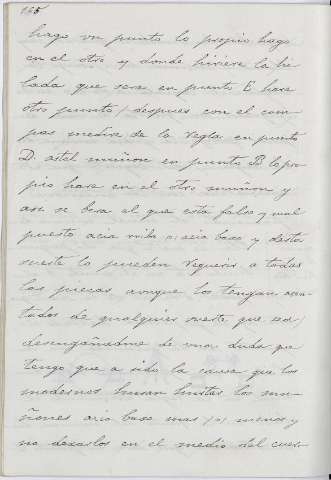 165
hago un punto lo propio hago
en el otro y donde hiriere la hi
lada que sera en punto E hara
otro punto / despues con el com
pas medira de la regla en punto
D. astal muñon en punto B lo pro-
pio hara en el otro muñon y
asi se bera al que esta falso y mal
puesto acia riba o; acia baxo, y desta
suerte lo pueden requerir a todas
las piecas aunque los tengan asen-
tados de qualquier suerte que sea /
desengañadme de una duda que
tengo que a sido la causa que los
modernos husan hustar los mu-
ñones acia baxo mas / o / menos y
no dexarlos en el medio del cuer-